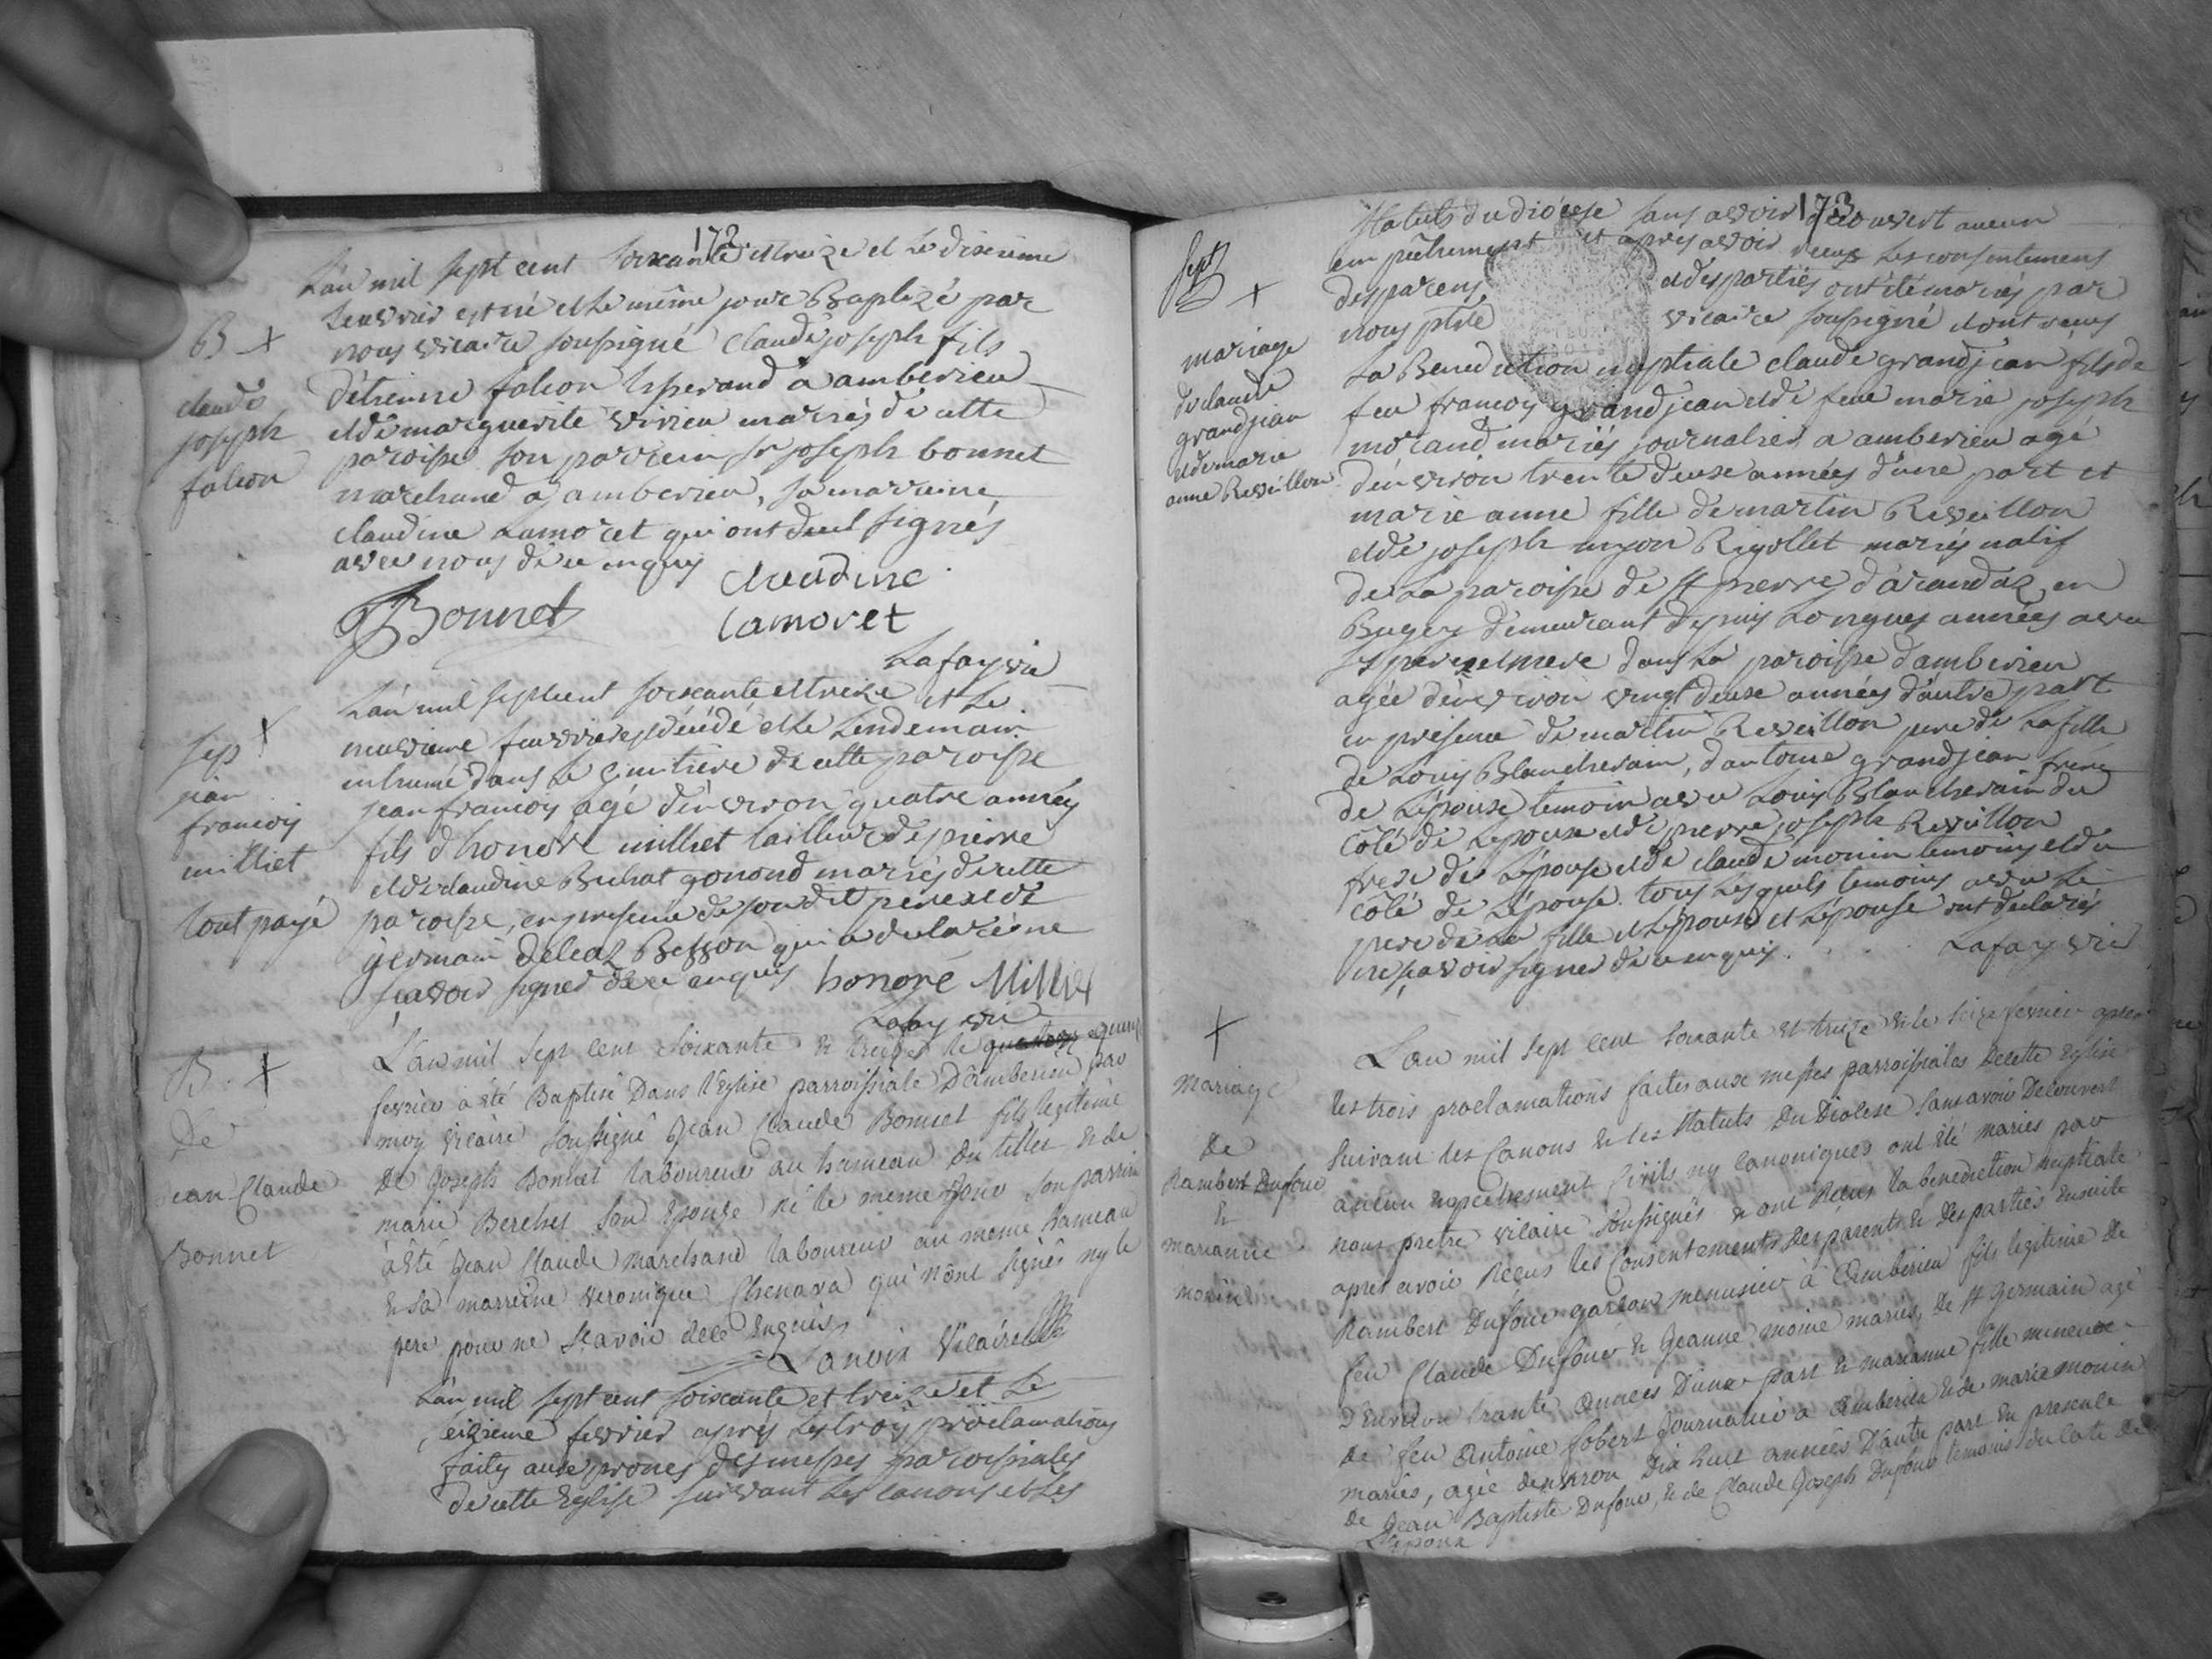 172.
L'an mil sept cent soixante et treize et le disieme
fevrier est né et le même jour Baptizé par
nous vicaire soussigné Claude joseph fils
d'étienne falcon tisserand a amberieu
et de marguerite vivien mariés de cette
paroisse son parrein sr joseph bonnet
marchand a amberieu, sa marreine
claudine Lamoret qui ont deul signés
avec nous de ce enquis
B +
claude
joseph
falcon
Bonnet
claudine
lamoret
Lafay vic
L'an mil sept cent soixante et treize et le
neuvieme fevrier est décédé et le Lendemain
inhumé dans le cimitière de cette paroisse
jean francois agé d'environ quatre années
fils d honoré milliet tailleur de pierre
et de claudine Buhat gonond mariés de cette
paroisse, en presence de son dit pere et de
germain deleaz Besson qui a declaré ne
sçavoir signer de ce enquis honoré Milliet
Lafay vic
sep +
jean
francois
milliet
tout payé
L'an mil sept cent soixante & treize & le quatorze quinze
fevrier a été Baptisé Dans l'Eglise parroissiale D'amberieu par
moy vicaire soussigné Jean Claude Bonnet fils legitime
De Joseph Bonnet laboureur au hameau Du tillet & de
marie Berchet son Epouse né le meme Jour son parrin
a été Jean Claude marchand laboureur au meme hameau
& sa marreine veronique Chenava qui n'ont signés ny le
pere pour ne scavoir dece Enquis
Vicaire
B. +
De
Jean Claude
Bonnet
L'an mil sept cent soixante et treize et le
seizieme fevrier après les trois proclamations
faites aux prones des messes paroissiales
de cette Eglise suivant les canons et les
173.
statuts du diocese sans avoir decouvert aucun
empêchement et apres avoir reçus les consentemens
des parens et des parties ont été mariés par
nous ptre vicaire soussigné et ont reçus
La Benediction nuptiale claude grandjean fils de
feu francois grandjean et de feue marie joseph
morand mariés journalier a amberieu agé
d'environ trente deuxe années d'une part et
marie anne fille de martin Reveillon
et de joseph Rigollet mariés natif
de La paroisse de St pierre d'arandaz en
Bugey demeurant depuis Longues années avec
ses pere et mere dans La paroisse d'amberieu
agée d'environ vingt deuxe années d'autre part
en presence de martin Reveillon pere de La fille
de Louis Blancherain, d'antoine grandjean frere
de L'épouse temoin avec Louis Blancherain du
côté de L'epouse et de pierre joseph Reveillon
frere de L'épouse et de claude monin temoins et du
côté de L'épouse. tous Lesquels temoins avec Le
pere de La fille et L'épous et L'épouse ont declarés
ne sçavoir signer de ce enquis.
Lafay vic
sept
+
mariage
de claude
grandjean
et de marie
anne Reveillon
L'an mil sept cent soixante & treize & le seize fevrier apres
les trois proclamations faites aux messes parroissiales Decette Eglise
suivant les Canons & les statuts Du Diocese sans avoir Decouvert
aucun Empechement Civils ny Canoniques ont été mariés par
nous pretre vicaire soussignés & ont Reçus la benediction nuptiale
apres avoir Reçus les Consentements des parents & des parties Ensuite
Rambert Dufour garcon menusier à Amberieu fils legitime de
feu Claude Dufour & Jeanne moine mariés, de st Germain agé
d'Environ trante Années Dune part & marianne fille mineure
de feu Antoine fobert Journalier a Amberieu & de marie monin
mariés, agée denviron Dix huit années D'autre part En presence
de Jean Baptiste Dufour, & de Claude Joseph Dufour temoins du coté de
L'Epoux
+
Mariage
De
Rambert Dufour
&
marianne
monin